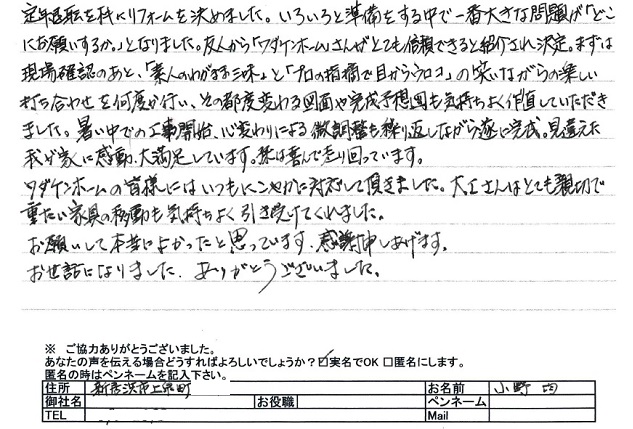 定年退転を机にリフォームを決めました。いろいろと準備をする中で一番大きな問題が「どこ
にお願いするか。」となりました。友人から「ワダケンホーム」さんがとても信頼できると紹介され決定。まずは
現場確認のあと、「素人のわがまま三昧」と「プロの指摘で目からウロコ」の笑いながらの楽しい
打ち合わせを何度か行い、その都度変わる図面や完成予想図も気持ちよく作直していただき
ました。暑い中での工事開始、心変わりによる微調整も繰り返しながら遂に完成。見違えた
我が家に感動、大満足しています。孫は喜んで走り回っています。
ワダケンホームの皆様にはいつもにこやかに対応して頂きました。大工さんはとても親切で
重たい家具の移動も気持ちよく引き受けてくれました。
お願いして本当によかったと思っています。感謝申しあげます。
お世話になりました。ありがとうございました。
※ ご協力ありがとうございました。
あなたの声を伝える場合どうすればよろしいでしょうか？☑実名でOK □匿名にします。
匿名の時はペンネームを記入下さい。
住所 新居浜市上泉町 お名前 小野 均
御社名 お役職 ペンネーム
TEL Mail